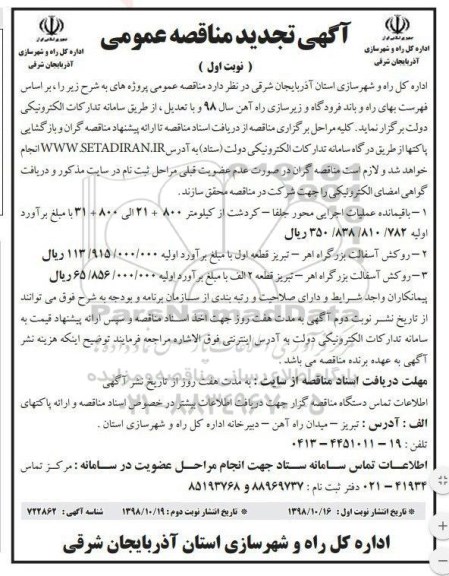 جمهوری اسلامی ایران
اداره کل راه و شهرسازی
آذربایجان شرقی
آگهی تجدید مناقصه عمومی
( نوبت اول )
جمهوری اسلامی ایران
اداره کل راه و شهرسازی
آذربایجان شرقی
اداره کل راه و شهرسازی استان آذربایجان شرقی در نظر دارد مناقصه عمومی پروژه های به شرح زیر را ، بر اساس
فهرست بهای راه و باند فرودگاه و زیرسازی راه آهن سال ۹۸ و با تعدیل ، از طریق سامانه تدارکات الکترونیکی
دولت برگزار نماید . کلیه مراحل برگزاری مناقصه از دریافت اسناد مناقصه تا ارائه پیشنهاد مناقصه گران و بازگشایی
پاکتها از طریق درگاه سامانه تدارکات الکترونیکی دولت (ستاد) به آدرس WWW.SETADIRAN.IR انجام
خواهد شد و لازم است مناقصه گران در صورت عدم عضویت قبلی مراحل ثبت نام در سایت مذکور و دریافت
گواهی امضای الکترونیکی را جهت شرکت در مناقصه محقق سازند .
۱ – باقیمانده عملیات اجرایی محور جلفا – کردشت از کیلومتر ۸۰۰ + ۲۱ الی ۸۰۰ + ۳۱ با مبلغ برآورد
اولیه ۷۸۲/ ۸۱۰/ ۸۳۸/ ۳۵۰ ریال
۲ – روکش آسفالت بزرگراه اهر – تبریز قطعه اول با مبلغ برآورد اولیه ۰۰۰/۰۰۰/ ۹۱۵/ ۱۱۳ ریال
۳ – روکش آسفالت بزرگراه اهر – تبریز قطعه ۲ الف با مبلغ برآورد اولیه ۰۰۰/۰۰۰/ ۸۵۶/ ۶۵ ریال
پیمانکاران واجد شرایط و دارای صلاحیت و رتبه بندی از سازمان برنامه و بودجه به شرح فوق می توانند
از تاریخ نشر نوبت دوم آگهی به مدت هفت روز جهت اخذ اسناد مناقصه و سپس ارائه پیشنهاد قیمت به
سامانه تدارکات الکترونیکی دولت به آدرس اینترنتی فوق الاشاره مراجعه فرمایند توضیح اینکه هزینه نشر
آگهی به عهده برنده مناقصه می باشد .
مهلت دریافت اسناد مناقصه از سایت : به مدت هفت روز از تاریخ نشر آگهی
اطلاعات تماس دستگاه مناقصه گزار جهت دریافت اطلاعات بیشتر در خصوص اسناد مناقصه و ارائه پاکتهای
الف : آدرس : تبریز – میدان راه آهن – دبیرخانه اداره کل راه و شهرسازی استان .
تلفن : ۱۹ – ۴۴۵۱۰۱۱ – ۰۴۱۳
اطلاعات تماس سامانه ستاد جهت انجام مراحل عضویت در سامانه : مرکز تماس
۴۱۹۳۴ – ۰۲۱ دفتر ثبت نام : ۸۸۹۶۹۷۳۷ و ۸۵۱۹۳۷۶۸
* تاریخ انتشار نوبت اول : ۱۳۹۸/۱۰/۱۶ * تاریخ انتشار نوبت دوم : ۱۳۹۸/۱۰/۱۹ شناسه آگهی : ۷۲۲۸۶۲
اداره کل راه و شهرسازی استان آذربایجان شرقی